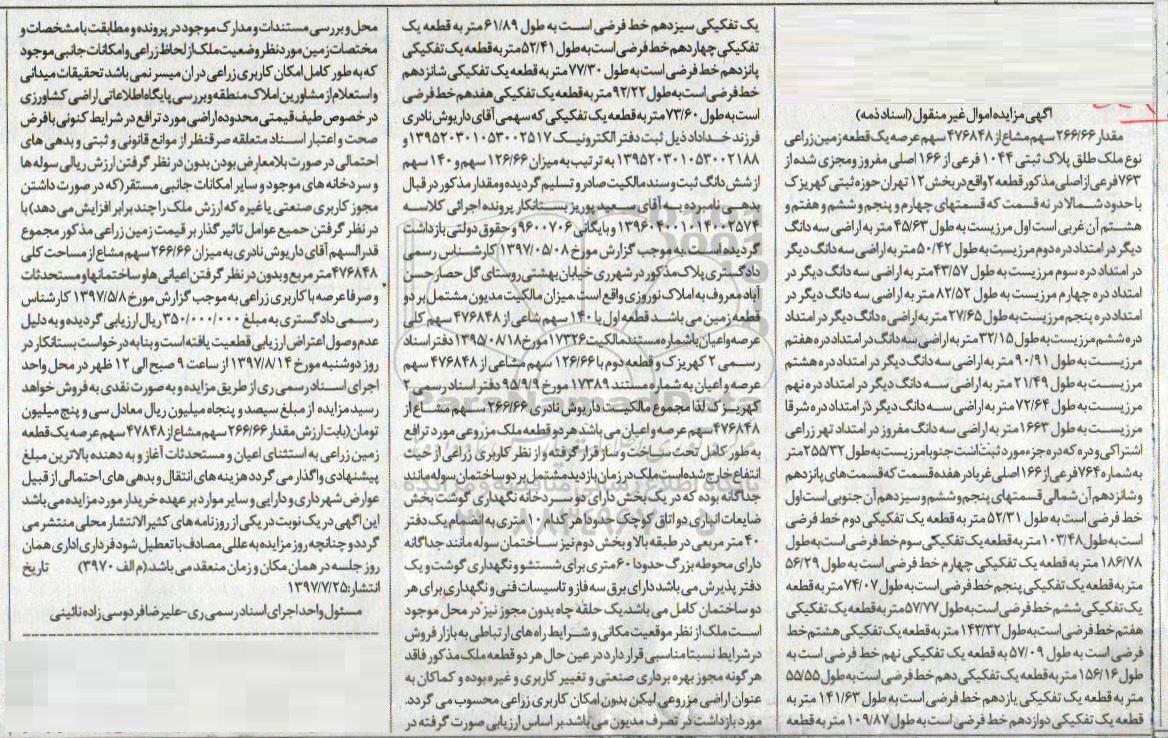 آگهی مزایده اموال غیر منقول (اسناد ذمه)
مقدار ۲۶۶/۶۶ سهم مشاع از ۴۷۶۸۴۸ سهم عرصه یک قطعه زمین زراعی
نوع ملک طلق پلاک ثبتی ۱۰۴۴ فرعی از ۱۶۶ اصلی مفروز و مجزی شده از
۷۶۳ فرعی از اصلی مذکور قطعه ۲ واقع در بخش ۱۲ تهران حوزه ثبتی کهریزک
با حدود شمالا در نه قسمت که قسمتهای چهارم و پنجم و ششم و هفتم و
هشتم آن غربی است اول مرزیست به طول ۴۵/۶۳ متر به اراضی سه دانگ
دیگر در امتداد دره دوم مرزیست به طول ۵۰/۴۲ متر به اراضی سه دانگ دیگر
در امتداد دره سوم مرزیست به طول ۴۳/۵۷ متر به اراضی سه دانگ دیگر در
امتداد دره چهارم مرزیست به طول ۸۲/۵۲ متر به اراضی سه دانگ دیگر در
امتداد دره پنجم مرزیست به طول ۲۷/۶۵ متر به اراضی ه دانگ دیگر در امتداد
دره ششم مرزیست به طول ۳۲/۱۵ متر به اراضی سه دانگ در امتداد دره هفتم
مرزیست به طول ۹۰/۹۱ متر به اراضی سه دانگ دیگر در امتداد دره هشتم
مرزیست به طول ۲۱/۴۹ متر به اراضی سه دانگ دیگر در امتداد دره نهم
مرزیست به طول ۷۲/۶۴ متر به اراضی سه دانگ دیگر در امتداد دره شرقا
مرزیست به طول ۱۶۶۳ متر به اراضی سه دانگ مفروز در امتداد نهر زراعی
اشتراکی و دره که دره جزء مورد ثبت است جنوبا مرزیست به طول ۲۵۵/۳۲ متر
به شماره ۷۶۴ فرعی از ۱۶۶ اصلی غربا در هفده قسمت که قسمت های پانزدهم
و شانزدهم آن شمالی قسمتهای پنجم و ششم و سیزدهم آن جنوبی است اول
خط فرضی است به طول ۵۲/۳۱ متر به قطعه یک تفکیکی دوم خط فرضی
است به طول ۱۰۳/۴۸ متر به قطعه یک تفکیکی سوم خط فرضی است به طول
۱۸۶/۷۸ متر به قطعه یک تفکیکی چهارم خط فرضی است به طول ۵۶/۲۹
متر به قطعه یک تفکیکی پنجم خط فرضی است به طول ۷۴/۰۷ متر به قطعه
یک تفکیکی ششم خط فرضی است به طول ۵۷/۷۷ متر به قطعه یک تفکیکی
هفتم خط فرضی است به طول ۱۴۳/۳۲ متر به قطعه یک تفکیکی هشتم خط
فرضی است به طول ۵۷/۰۹ به قطعه یک تفکیکی نهم خط فرضی است به
طول ۱۵۶/۱۶ متر به قطعه یک تفکیکی دهم خط فرضی است به طول ۵۵/۵۵
متر به قطعه یک تفکیکی یازدهم خط فرضی است به طول ۱۴۱/۶۳ متر به
قطعه یک تفکیکی دوازدهم خط فرضی است به طول ۱۰۹/۸۷ متر به قطعه
یک تفکیکی سیزدهم خط فرضی است به طول ۶۱/۸۹ متر به قطعه یک
تفکیکی چهاردهم خط فرضی است به طول ۵۲/۴۱ متر به قطعه یک تفکیکی
پانزدهم خط فرضی است به طول ۷۷/۳۰ متر به قطعه یک تفکیکی شانزدهم
خط فرضی است به طول ۹۲/۲۲ متر به قطعه یک تفکیکی هفدهم خط فرضی
است به طول ۷۳/۶۰ متر به قطعه یک تفکیکی که سهمی آقای داریوش نادری
فرزند خداداد ذیل ثبت دفتر الکترونیک ۱۳۹۵۲۰۳۰۱۰۵۳۰۰۲۵۱۷ و
۱۳۹۵۲۰۳۰۱۰۵۳۰۰۲۱۸۸ به ترتیب به میزان ۱۲۶/۶۶ سهم و ۱۴۰ سهم
از شش دانگ ثبت و سند مالکیت صادر و تسلیم گردیده و مقدار مذکور در قبال
بدهی نامبرده به آقای سعید پوریز بستانکار پرونده اجرائی کلاسه
۱۳۹۶۰۴۰۰۱۰۱۴۰۰۲۵۷۴ و بایگانی ۹۶۰۰۷۰۶ و حقوق دولتی بازداشت
گردیده است. به موجب گزارش مورخ ۱۳۹۷/۰۵/۰۸ کارشناس رسمی
دادگستری پلاک مذکور در شهرری خیابان بهشتی روستای گل حصار حسن
آباد معروف به املاک نوروزی واقع است. میزان مالکیت مدیون مشتمل بر دو
قطعه زمین می باشد قطعه اول با ۱۴۰ سهم شاعی از ۴۷۶۸۴۸ سهم کلی
عرصه و اعیان با شماره مستند مالکیت ۱۷۳۲۶ مورخ ۱۳۹۵/۰۸/۱۸ دفتر اسناد
رسمی ۲ کهریزک و قطعه دوم با ۱۲۶/۶۶ سهم مشاعی از ۴۷۶۸۴۸ سهم
عرصه و اعیان به شماره مستند ۱۷۳۸۹ مورخ ۹۵/۹/۹ دفتر اسناد رسمی ۲
کهریزک لذا مجموع مالکیت داریوش نادری ۲۶۶/۶۶ سهم مشاع از
۴۷۶۸۴۸ سهم عرصه و اعیان می باشد هر دو قطعه ملک مزروعی مورد ترافع
به طور کامل تحت ساخت و ساز قرار گرفته و از نظر کاربری زراعی از حیث
انتفاع خارج شده است ملک در زمان بازدید مشتمل بر دو ساختمان سوله مانند
جداگانه بوده که در یک بخش دارای دو سردخانه نگهداری گوشت بخش
ضایعات انباری دو اتاق کوچک حدودا هر کدام ۱۰ متری به انضمام یک دفتر
۴۰ متر مربعی در طبقه بالا و بخش دوم نیز ساختمان سوله مانند جداگانه
دارای محوطه بزرگ حدودا ۶۰ متری برای شستشو و نگهداری گوشت و یک
دفتر پذیرش می باشد دارای برق سه فاز و تاسیسات فنی و نگهداری برای هر
دو ساختمان کامل می باشد. یک حلقه چاه بدون مجوز نیز در محل موجود
است ملک از نظر موقعیت مکانی و شرایط راه های ارتباطی به بازار فروش
در شرایط نسبتا مناسبی قرار دارد در عین حال هر دو قطعه ملک مذکور فاقد
هر گونه مجوز بهره برداری صنعتی و تغییر کاربری و غیره بوده و کماکان به
عنوان اراضی مزروعی لیکن بدون امکان کاربری زراعی محسوب می گردد.
مورد بازداشت در تصرف مدیون می باشد. بر اساس ارزیابی صورت گرفته در
محل و بررسی مستندات و مدارک موجود در پرونده و مطابقت با مشخصات و
مختصات زمین مورد نظر وضعیت ملک از لحاظ زراعی و امکانات جانبی موجود
که به طور کامل امکان کاربری زراعی در ان میسر نمی باشد تحقیقات میدانی
و استعلام از مشاورین املاک منطقه و بررسی پایگاه اطلاعاتی اراضی کشاورزی
در خصوص طیف قیمتی محدوده اراضی مورد ترافع در شرایط کنونی با فرض
صحت و اعتبار اسناد متعلقه صرفنظر از موانع قانونی و ثبتی و بدهی های
احتمالی در صورت بلا معارض بودن بدون در نظر گرفتن ارزش ریالی سوله ها
و سردخانه های موجود و سایر امکانات جانبی مستقر (که در صورت داشتن
مجوز کاربری صنعتی یا غیره که ارزش ملک را چند برابر افزایش می دهد) با
در نظر گرفتن حمیع عوامل تاثیر گذار بر قیمت زمین زراعی مذکور مجموع
قدرالسهم آقای داریوش نادری به میزان ۲۶۶/۶۶ سهم مشاع از مساحت کلی
۴۷۶۸۴۸ متر مربع و بدون در نظر گرفتن اعیانی ها و ساختمانها و مستحدثات
و صرفا عرصه با کاربری زراعی به موجب گزارش مورخ ۱۳۹۷/۵/۸ کارشناس
رسمی دادگستری به مبلغ ۳۵۰/۰۰۰/۰۰۰ ریال ارزیابی گردیده و به دلیل
عدم وصول اعتراض ارزیابی قطعیت یافته است و بنا به درخواست بستانکار در
روز دوشنبه مورخ ۱۳۹۷/۸/۱۴ از ساعت ۹ صبح الی ۱۲ ظهر در محل واحد
اجرای اسناد رسمی ری از طریق مزایده و به صورت نقدی به فروش خواهد
رسید مزایده از مبلغ سیصد و پنجاه میلیون ریال معادل سی و پنج میلیون
تومان (بابت ارزش مقدار ۲۶۶/۶۶ سهم مشاع از ۴۷۸۴۸ سهم عرصه یک قطعه
زمین زراعی به استثنای اعیان و مستحدثات آغاز و به دهنده بالاترین مبلغ
پیشنهادی واگذار می گردد هزینه های انتقال و بدهی های احتمالی از قبیل
عوارض شهرداری و دارایی و سایر موارد بر عهده خریدار مورد مزایده می باشد
این آگهی در یک نوبت در یکی از روزنامه های کثیرالانتشار محلی منتشر می
گردد و چنانچه روز مزایده به عللی مصادف با تعطیل شود فردای اداری همان
روز جلسه در همان مکان و زمان منعقد می باشد (م الف ۳۹۷۰) تاریخ
انتشار: ۱۳۹۷/۷/۲۵
مسئول واحد اجرای اسناد رسمی ری- علیرضا فردوسی زاده نائینی
ParsNamadData